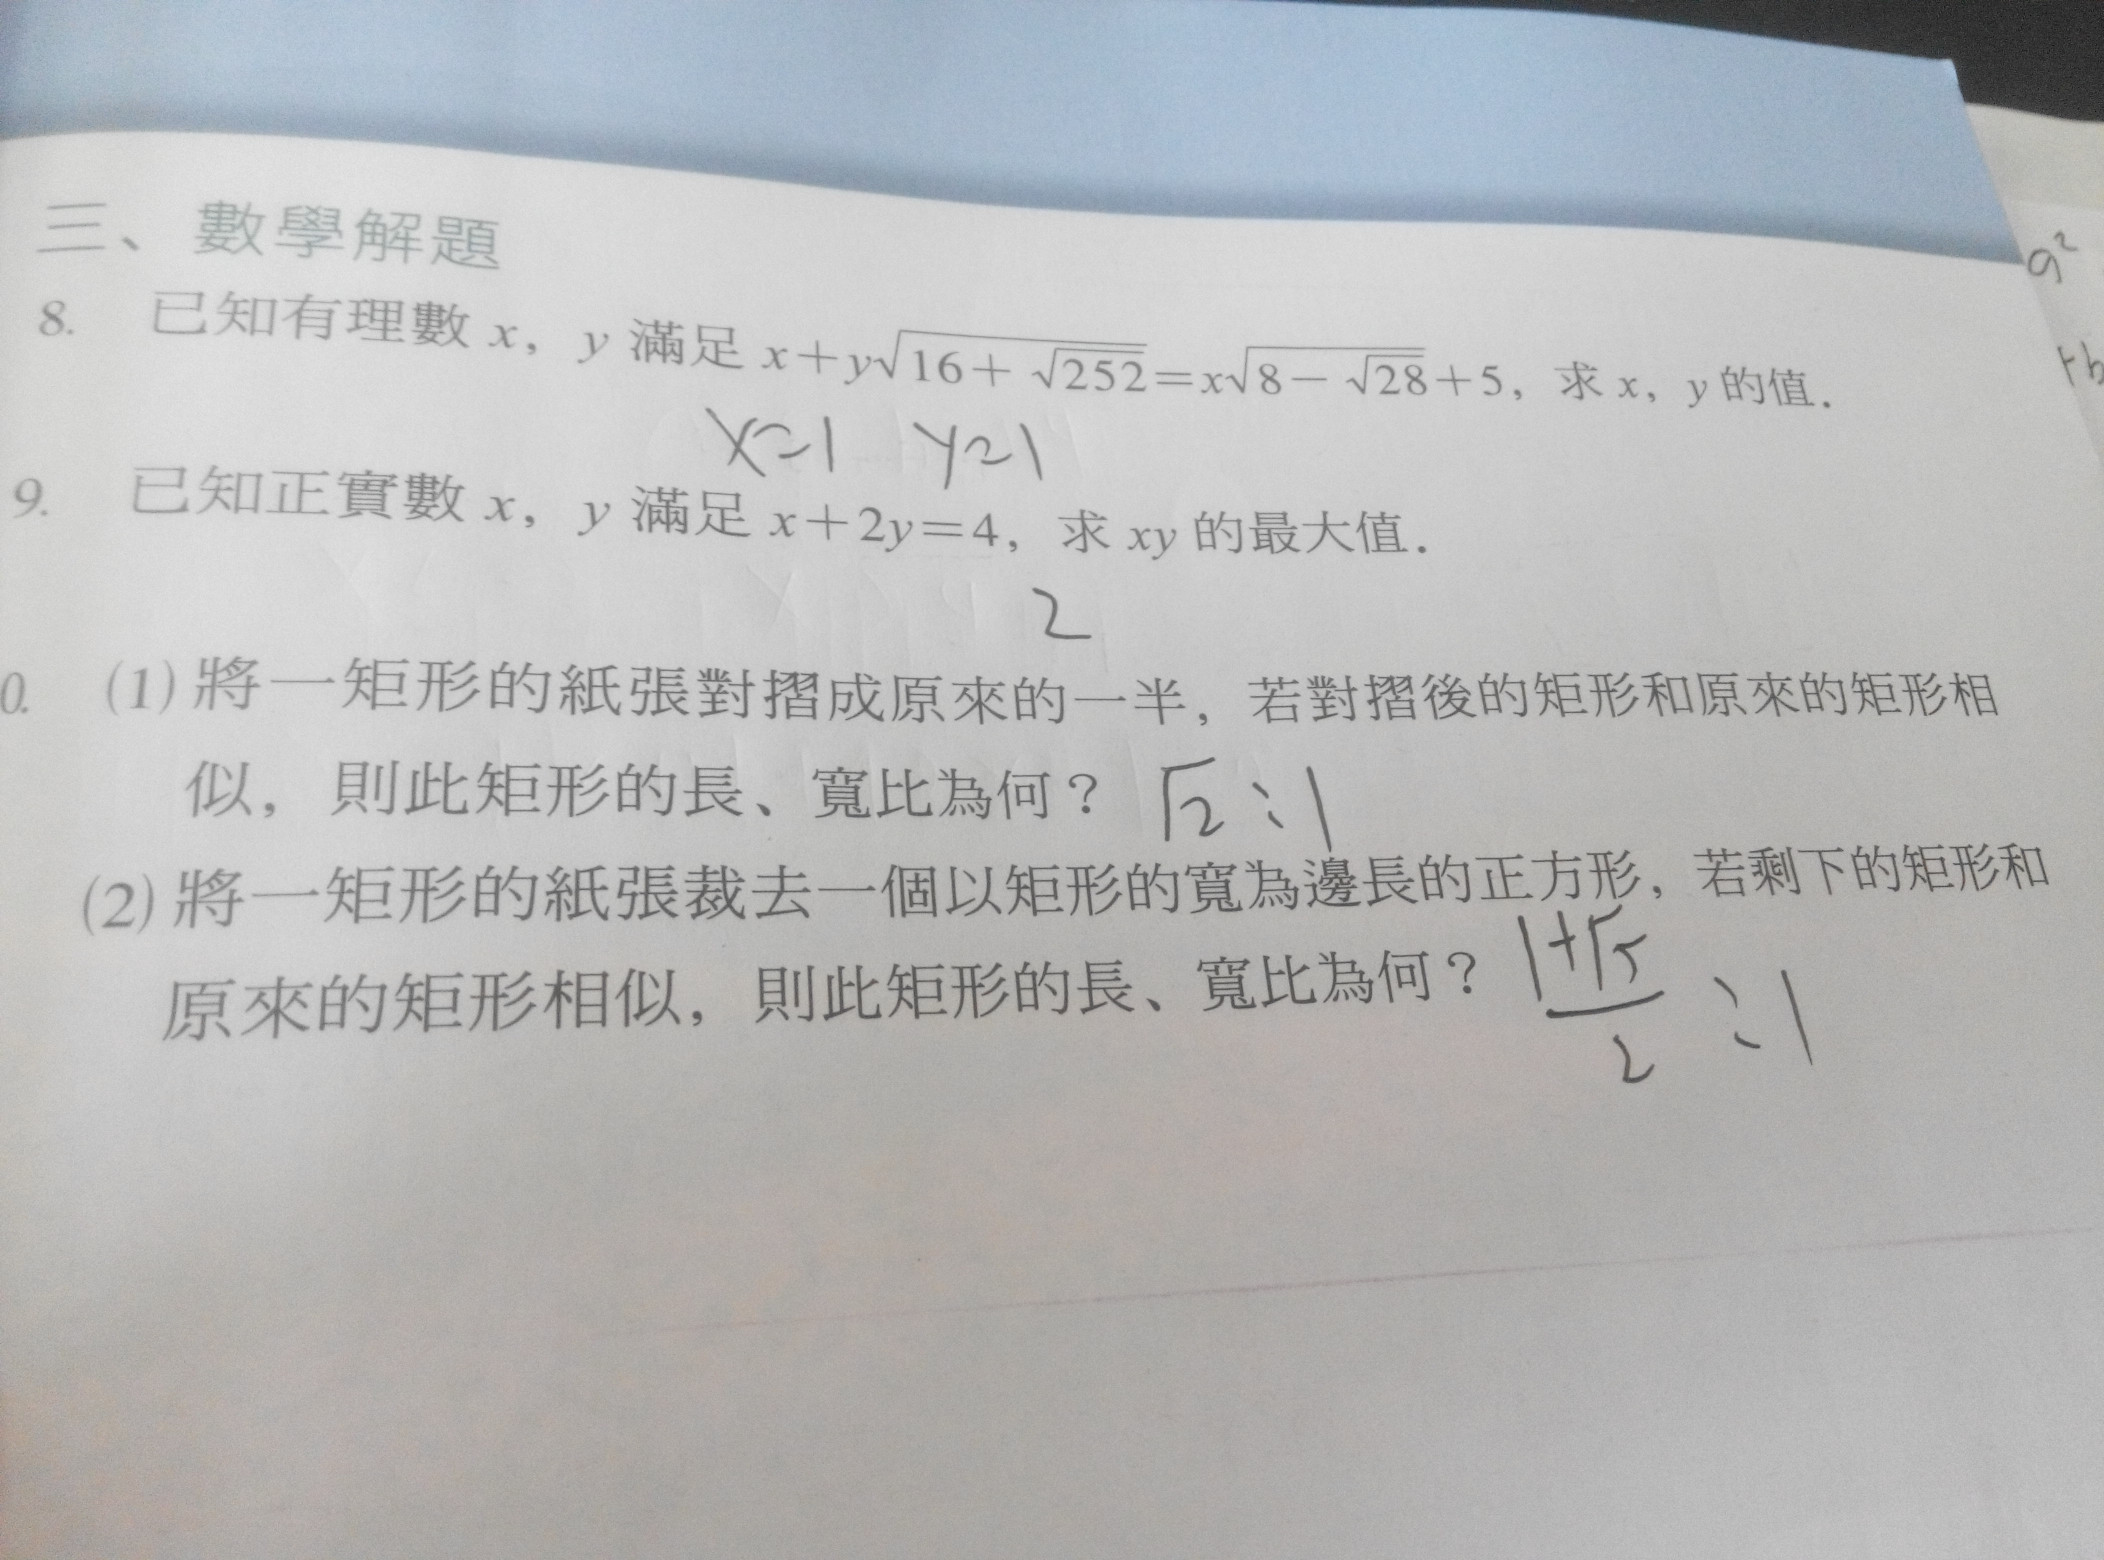 三、數學解題
8. 已知有理數 x，y 滿足 x+y√(16+√252)=x√(8-√28)+5，求 x，y 的值．
x=1 y=1
9. 已知正實數 x，y 滿足 x+2y=4，求 xy 的最大值．
2
0. (1) 將一矩形的紙張對摺成原來的一半，若對摺後的矩形和原來的矩形相
似，則此矩形的長、寬比為何？ √2:1
(2) 將一矩形的紙張裁去一個以矩形的寬為邊長的正方形，若剩下的矩形和
原來的矩形相似，則此矩形的長、寬比為何？ (1+√5)/2 :1
+b